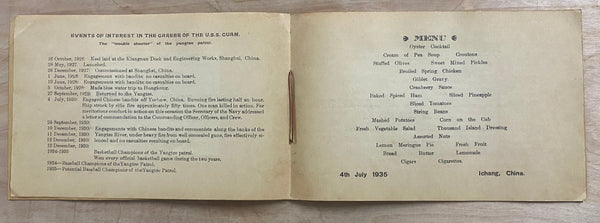 EVENTS OF INTEREST IN THE CAREER OF THE U.S.S. GUAM.
The "trouble shooter" of the yangtze patrol.
16 October, 1926: Keel laid at the Kiangnan Dock and Engineering Works, Shanghai, China.
28 May, 1927: Launched.
28 December, 1927: Commissioned at Shanghai, China.
1 June, 1928: Engagement with bandits; no casualties on board.
10 June, 1928: Engagement with bandits; no casualties on board.
5 October, 1928: Made blow water trip to Hongkong.
27 September, 1929: Returned to the Yangtze.
4 July, 1930: Engaged Chinese bandits off Yochow, China. Running fire lasting half an hour.
Ship struck by rifle fire approximately fifty times. One man killed in action. For
meritorious conduct in action on this occasion the Secretary of the Navy addressed
a letter of commendation to the Commanding Officer, Officers, and Crew.
24 September, 1930:
10 December, 1930: Engagements with Chinese bandits and communists along the banks of the
11 December, 1930: Yangtze River, under heavy fire from well concealed guns, fire effectively si-
12 December, 1930: lenced and no casualties resulting on board.
13 December, 1930:
1934-1935 Basketball Champions of the Yangtze patrol.
Won every official basketball game during the two years.
1934—Baseball Champions of the Yangtze Patrol.
1935—Potential Baseball Champions of the Yangtze Patrol.
MENU
Oyster Cocktail
Cream of Pea Soup Croutons
Stuffed Olives Sweet Mixed Pickles
Broiled Spring Chicken
Giblet Gravy
Cranberry Sauce
Baked Spiced Ham Sliced Pineapple
Sliced Tomatoes
String Beans
Mashed Potatoes Corn on the Cab
Fresh Vegetable Salad Thousand Island Dressing
Assorted Nuts
Lemon Meringue Pie Fresh Fruit
Bread Butter Lemonade
Cigars Cigarettes.
4th July 1935 Ichang, China.